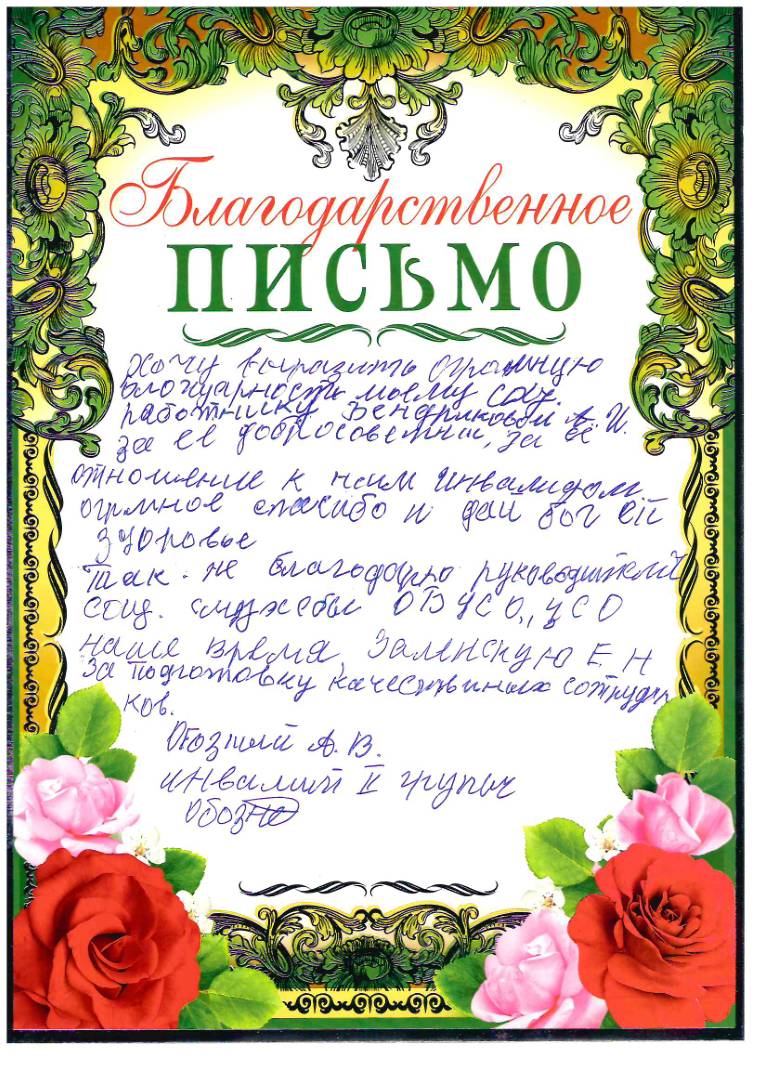 Благодарственное
ПИСЬМО
Хочу выразить огромную
благодарность моему соц.
работнику Бендриковой А. И.
за её добросоветны, за её
отношение к нам инвалидом
огрмное спасибо и дай бог ей
здоровье
так не благодарю руководителй
соц. службы ОБУСО „ЦСО
наше время, Заленскую Е. Н
за подготовку качественных сотрудн
ков.
А. В.
инвалий II групы